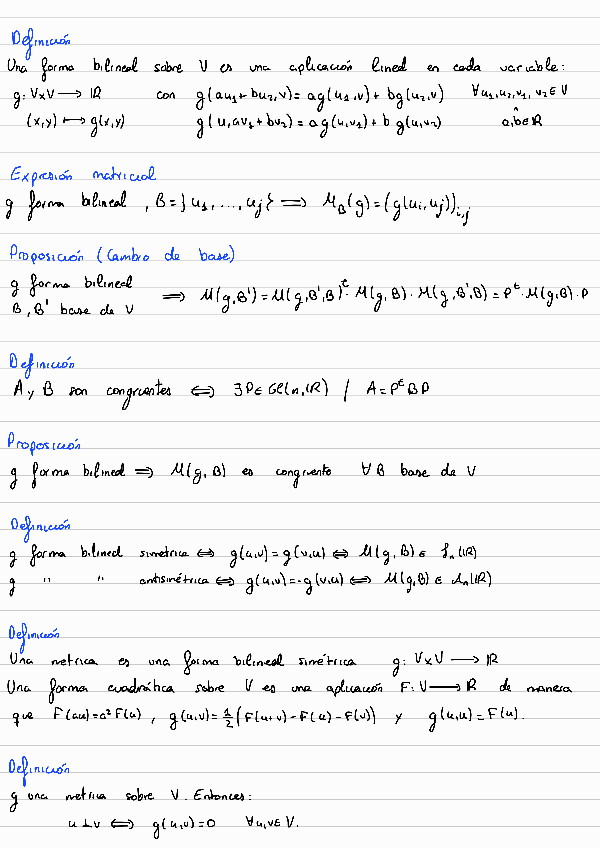 Definición
Una forma bilineal sobre V es una aplicación lineal en cada variable:
g: V×V ⟶ ℝ con g(au₁+bu₂,v) = ag(u₁,v) + bg(u₂,v) ∀u₁,u₂,v₁,v₂∈V
(x,y) ⟼ g(x,y) g(u,av₁+bv₂) = ag(u,v₁) + b g(u,v₂) a,b∈ℝ
Expresión matricial
g forma bilineal, B={u₁,...,uⱼ} ⟹ M_B(g) = (g(uᵢ,uⱼ))ᵢ,ⱼ
Proposición (Cambio de base)
g forma bilineal
B, B' base de V ⟹ M(g,B') = M(g,B',B)ᵗ · M(g,B) · M(g,B',B) = Pᵗ · M(g,B) · P
Definición
A y B son congruentes ⟺ ∃P∈Gl(n,ℝ) / A = PᵗBP
Proposición
g forma bilineal ⟹ M(g,B) es congruente ∀B base de V
Definición
g forma bilineal simétrica ⟺ g(u,v) = g(v,u) ⟺ M(g,B) ∈ Sₙ(ℝ)
g " " antisimétrica ⟺ g(u,v) = -g(v,u) ⟺ M(g,B) ∈ Aₙ(ℝ)
Definición
Una metrica es una forma bilineal simétrica g: V×V ⟶ ℝ
Una forma cuadrática sobre V es una aplicación F: V ⟶ ℝ de manera
que F(au) = a²F(u), g(u,v) = 1/2 (F(u+v) - F(u) - F(v)) y g(u,u) = F(u).
Definición
g una metrica sobre V. Entonces:
u ⊥ v ⟺ g(u,v) = 0 ∀u,v∈V.